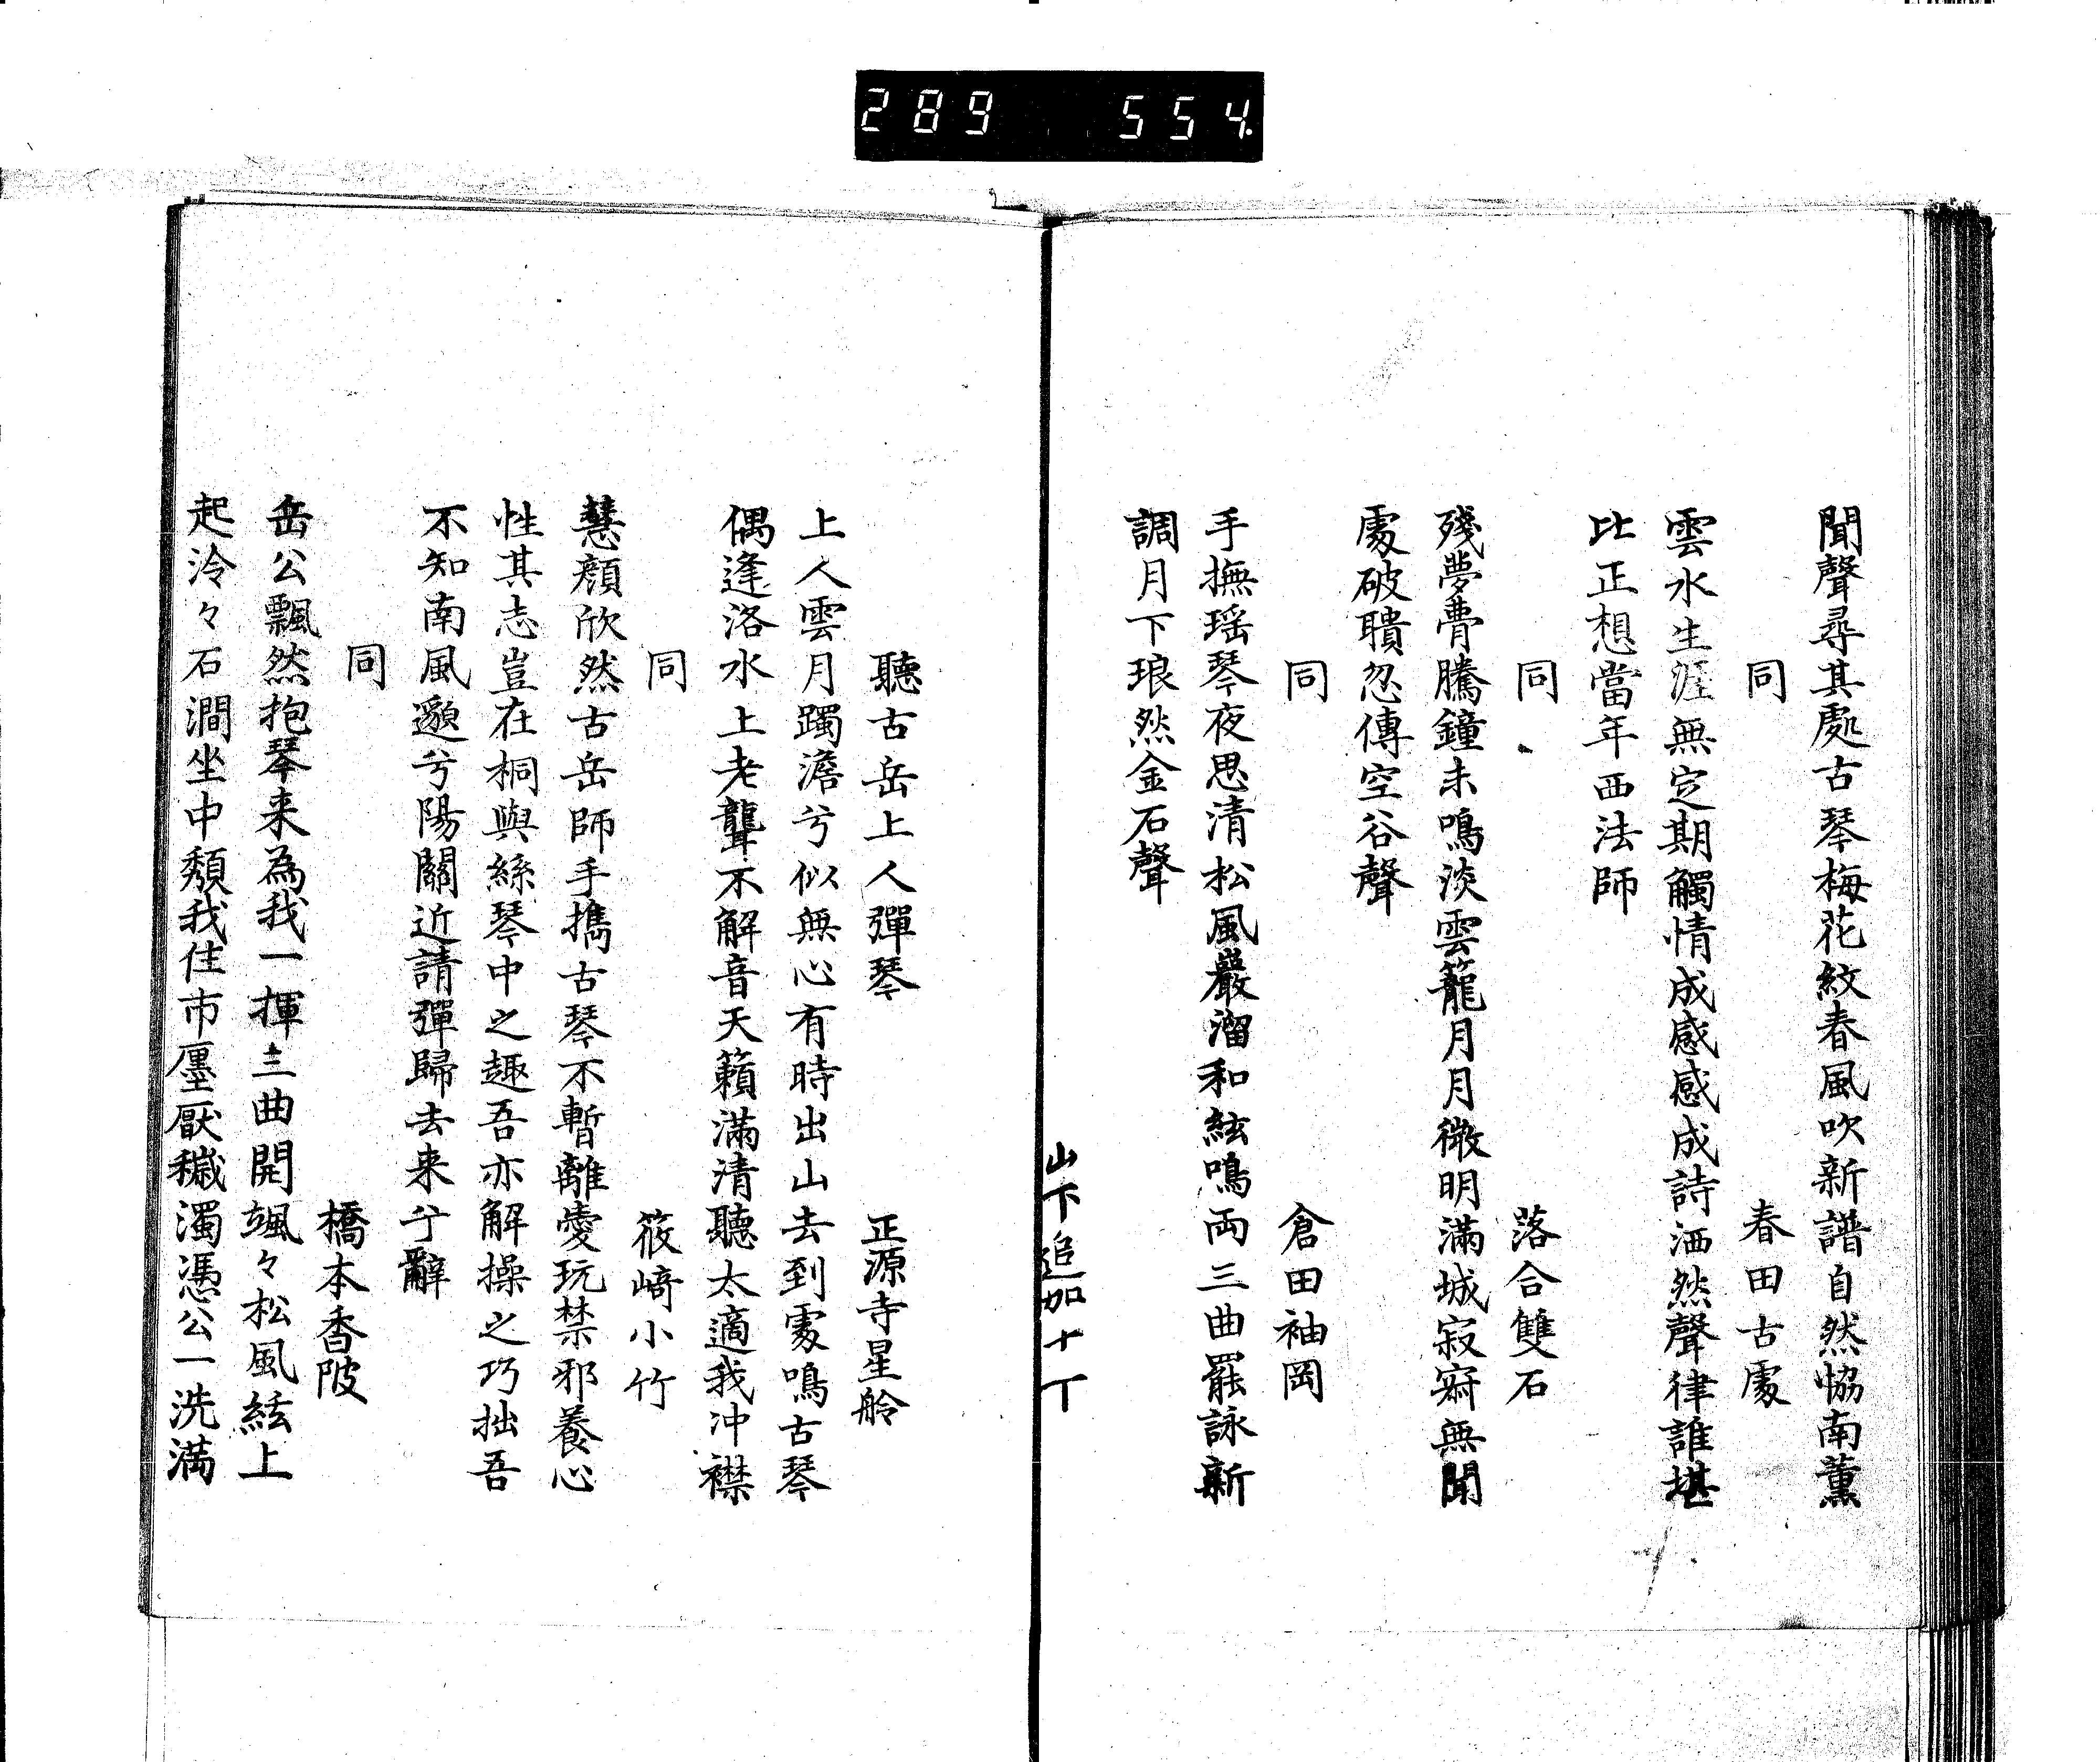 289 554
聞聲尋其處古琴梅花紋春風吹新譜自然恊南薰
同 春田古䖏
雲水生涯無定期觸情成感感成詩洒然聲律誰堪
比正想當年西法師
同 落合雙石
殘夢瞢騰鐘未鳴淡雲籠月月微明滿城寂寂無聞
䖏破聵忽傳空谷聲
同 倉田袖岡
手撫瑶琴夜思清松風巖溜和絃鳴両三曲罷詠新
調月下琅然金石聲
山下追加十丁
聽古岳上人彈琴 正源寺星舲
上人雲月躅澹兮似無心有時出山去到䖏鳴古琴
偶逢洛水上老聾不解音天籟滿清聽太適我冲襟
同 筱﨑小竹
慧顏欣然古岳師手擕古琴不暫離愛玩禁邪養心
性其志豈在桐與絲琴中之趣吾亦解操之巧拙吾
不知南風邈兮陽關近請彈歸去来兮辭
同 橋本香陂
岳公飄然抱琴来為我一揮三曲開颯々松風絃上
起泠々石澗坐中頽我住市廛厭穢濁憑公一洗満